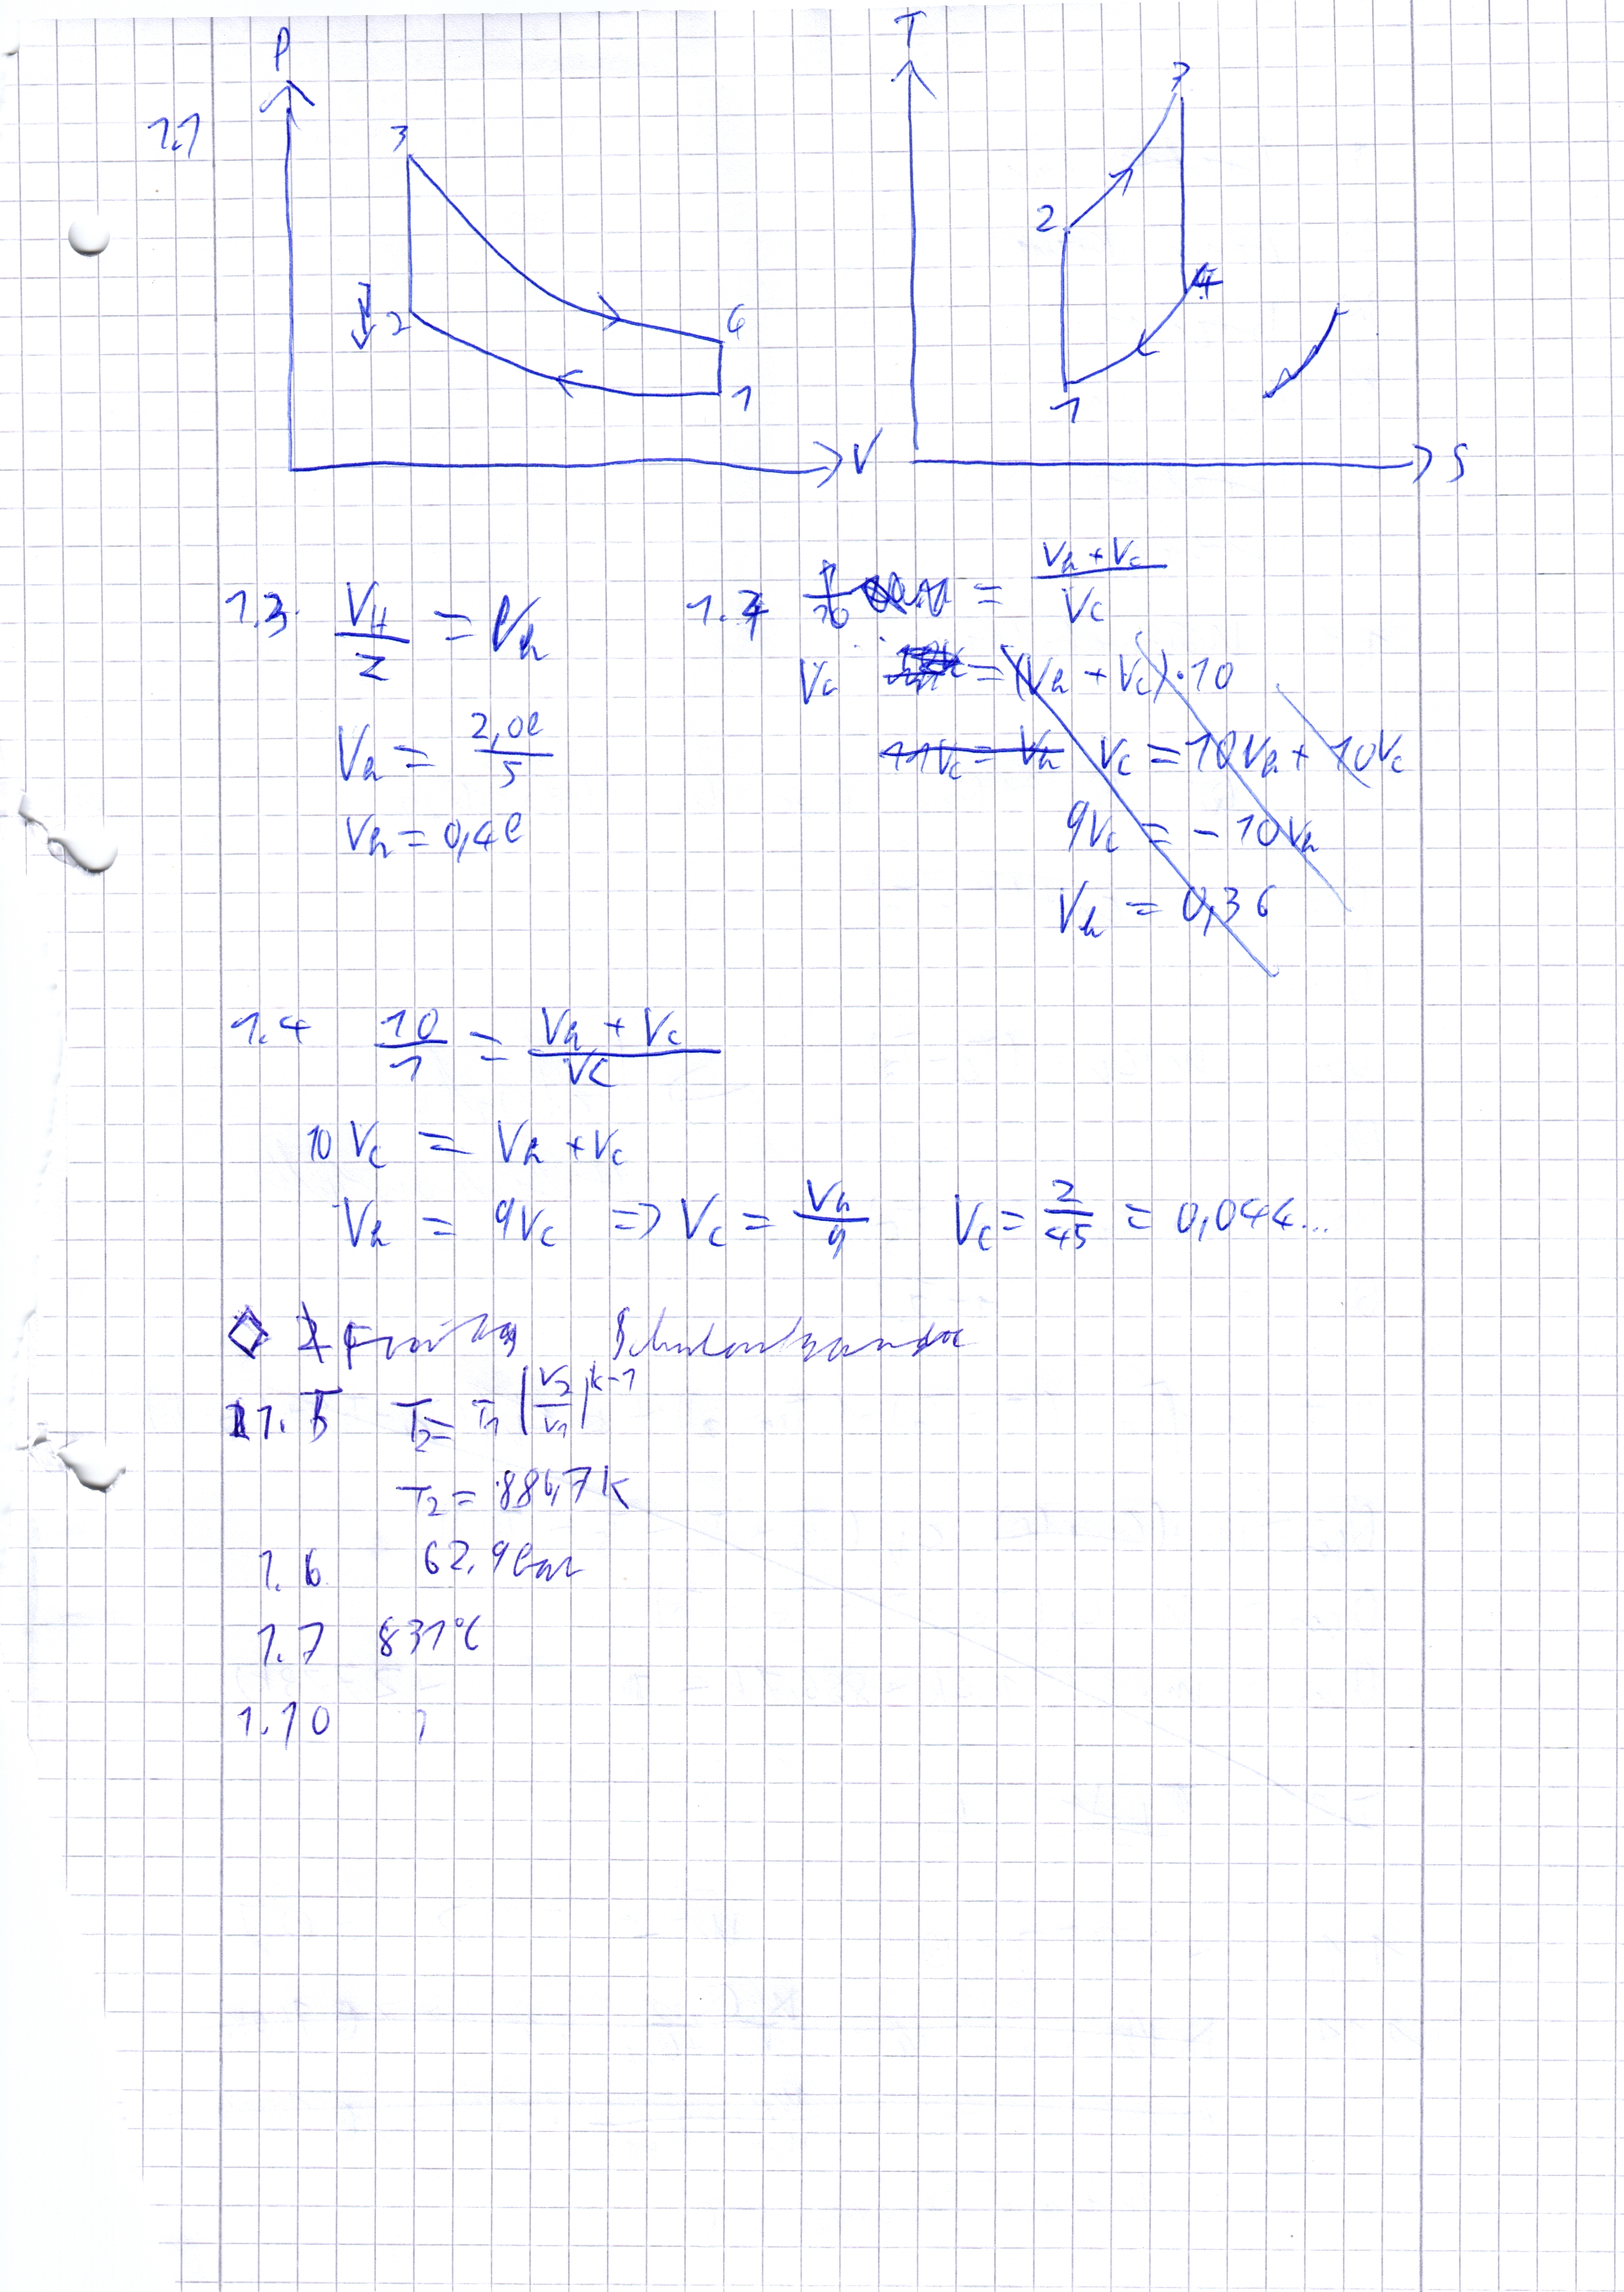 1.1
P
3
2
4
1
V
T
3
2
4
1
S
1.3 V_H/z = V_h
V_h = 2,0l/5
V_h = 0,4l
1.4 = (V_h + V_c)/V_c
V_c = (V_h + V_c)·10
11V_c = V_h V_c = 10V_h + 10V_c
9V_c = -10V_h
V_h = 0,36
1.4 10/1 = (V_h + V_c)/V_c
10 V_c = V_h + V_c
V_h = 9V_c => V_c = V_h/9 V_c = 2/45 = 0,044...
1.5 T_2 = T_1 (V_2/V_1)^k-1
T_2 = 886,7K
1.6 62,9bar
1.7 831°C
1.10